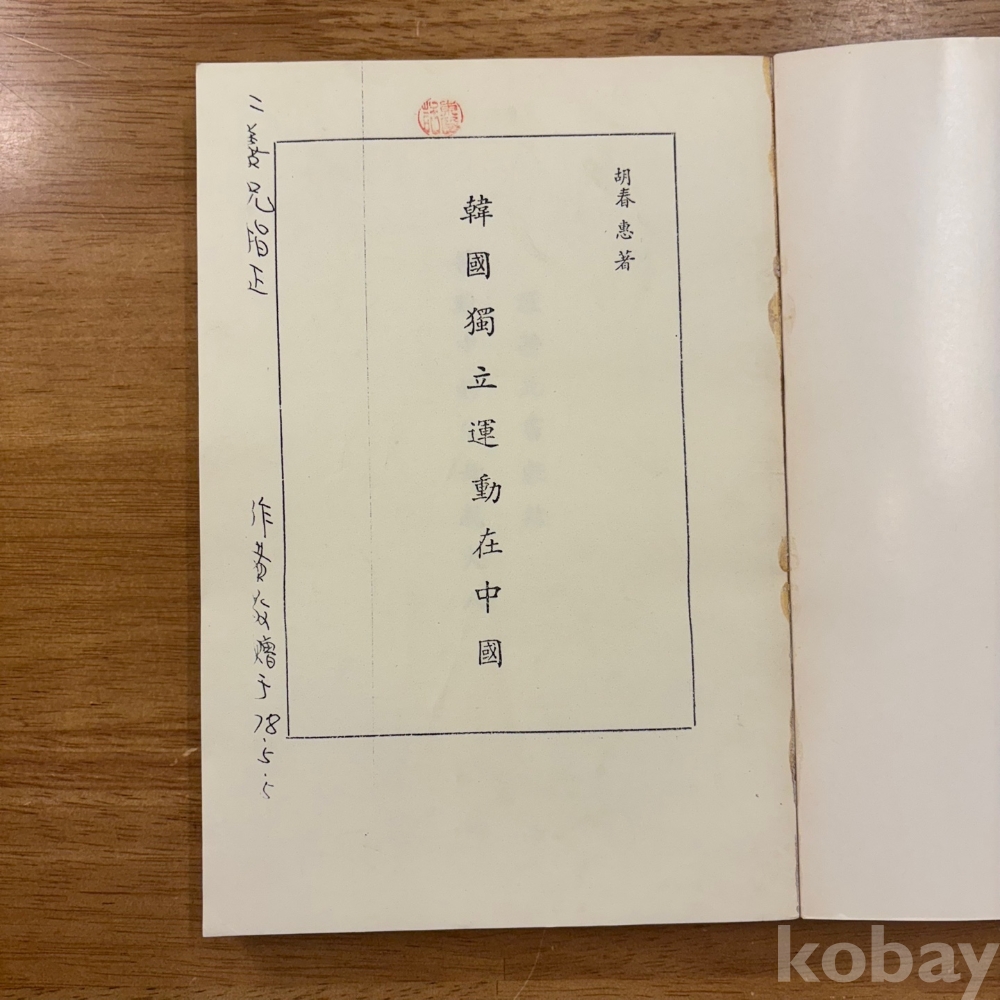 胡春惠著
韓國獨立運動在中國
兄指正
作者敬贈于78.5.5
kobay